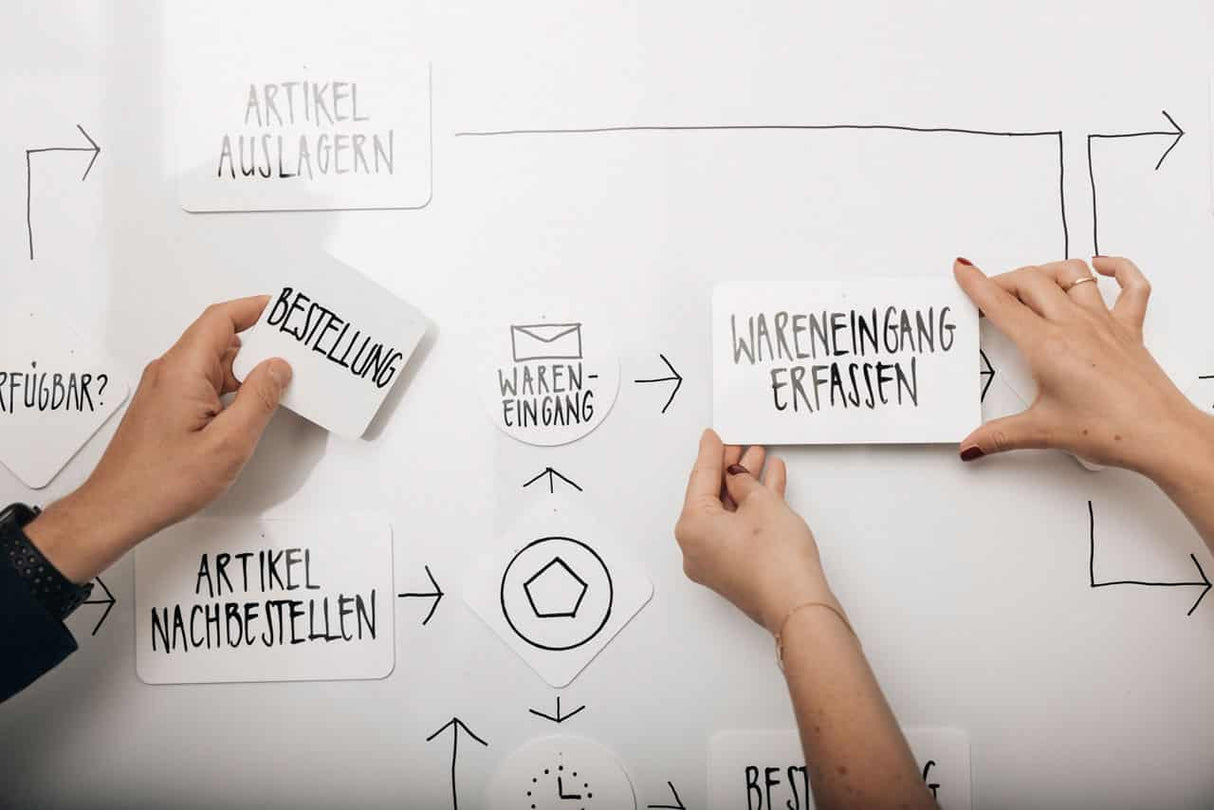 ARTIKEL
AUSLAGERN
BESTELLUNG
RFÜGBAR?
WAREN-
EINGANG
WARENEINGANG
ERFASSEN
ARTIKEL
NACHBESTELLEN
BEST
G